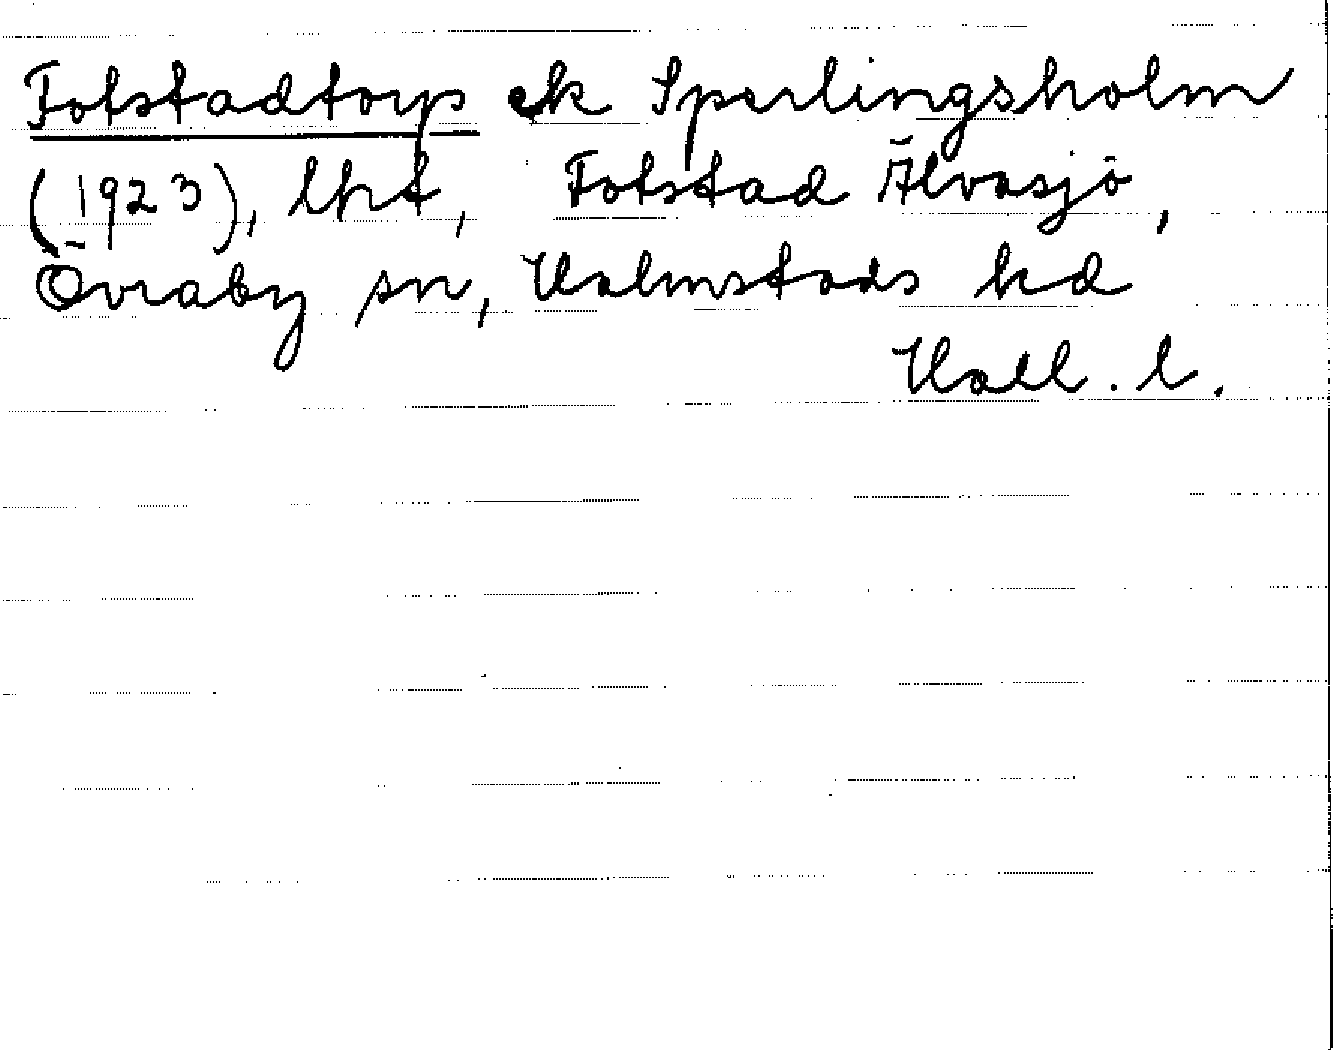 Fotstadtorp ek Sperlingsholm
(1923), lht, Fotstad Älvasjö,
Övraby sn, Halmstads hd
Hall. l.